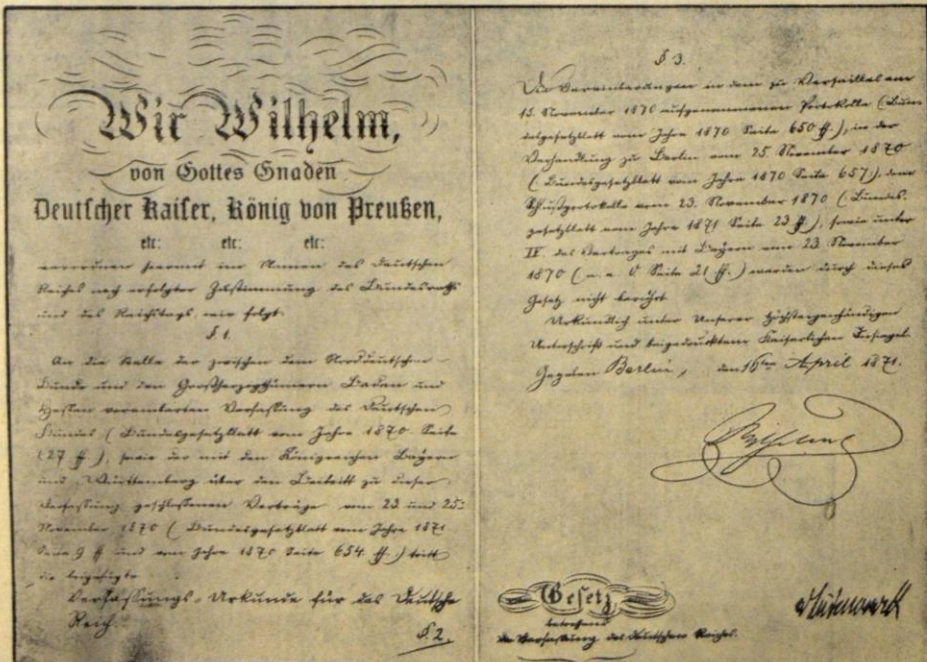 Wir Wilhelm,
von Gottes Gnaden
Deutscher Kaiser, König von Preußen,
etc: etc: etc:
verordnen hiermit im Namen des Deutschen
Reiches nach erfolgter Zustimmung des Bundesraths
und des Reichstags, wie folgt:
§. 1.
An die Stelle der zwischen dem Norddeutschen
Bunde und den Großherzogthümern Baden und
Hessen vereinbarten Verfassung des Deutschen
Bundes (Bundesgesetzblatt vom Jahre 1870. Seite
627 ff.), sowie der mit den Königreichen Bayern
und Württemberg über den Beitritt zu dieser
Verfassung geschlossenen Verträge vom 23. und 25.
November 1870 (Bundesgesetzblatt vom Jahre 1871.
Seite 9 ff. und vom Jahre 1870 Seite 654 ff.) tritt
die beigefügte
Verfassungs-Urkunde für das Deutsche
Reich.
§. 2.
§ 3.
Die Vereinbarungen in dem zu Versailles am
15. November 1870 aufgenommenen Protokolle (Bun-
desgesetzblatt vom Jahre 1870 Seite 650 ff.), in der
Verhandlung zu Berlin vom 25. November 1870
(Bundesgesetzblatt vom Jahre 1870 Seite 657), dem
Schlußprotokolle vom 23. November 1870 (Bundes-
gesetzblatt vom Jahre 1871 Seite 23 ff.), sowie unter
IV. des Vertrages mit Bayern vom 23. November
1870 (a. a. O. Seite 21 ff.) werden durch dieses
Gesetz nicht berührt.
Urkundlich unter Unserer Höchsteigenhändigen
Unterschrift und beigedrucktem Kaiserlichen Insiegel.
Gegeben Berlin, den 16ten April 1871.
Gesetz,
betreffend
die Verfassung des Deutschen Reiches.